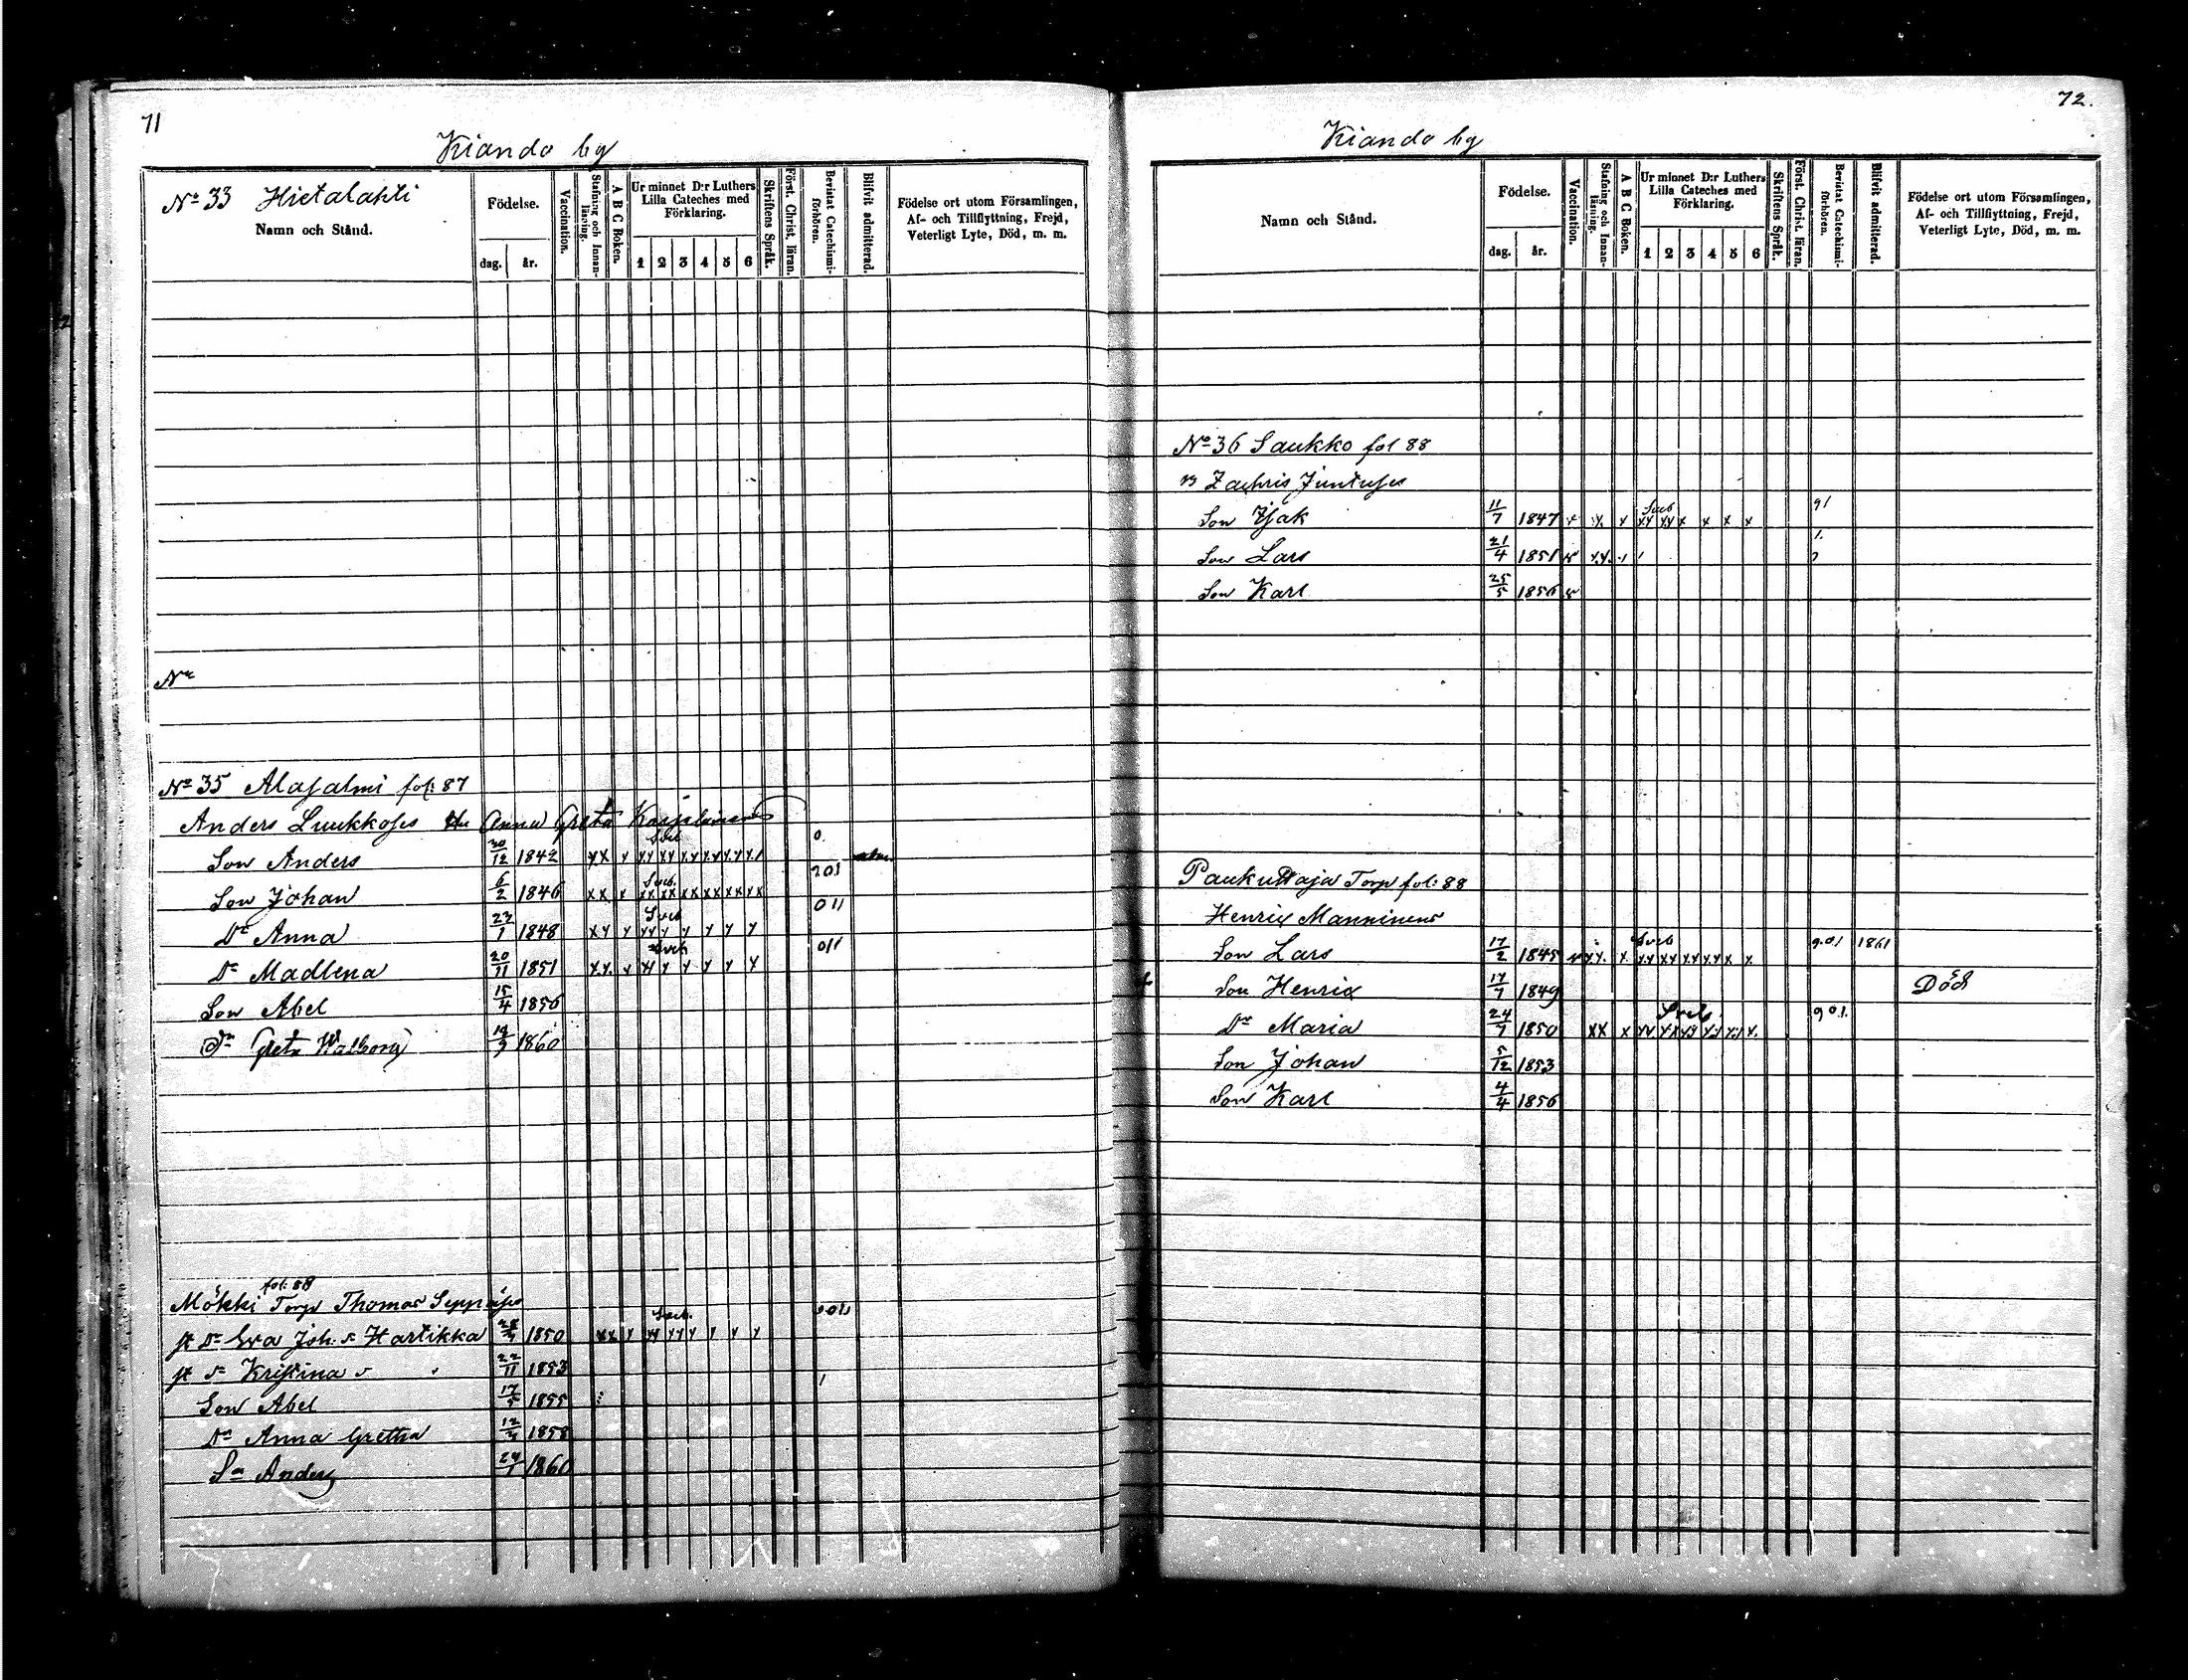 71
Kiando by
No 33 Hietalahti
Namn och Stånd.
Födelse.
dag. år.
Vaccination.
Stafning och Innanläsning.
A B C Boken.
Ur minnet D:r Luthers Lilla Cateches med Förklaring.
1 2 3 4 5 6
Skriftens Språk.
Först. Christ. läran.
Bevistat Catechismiförhören.
Blifvit admitterad.
Födelse ort utom Församlingen, Af- och Tillflyttning, Frejd, Veterligt Lyte, Död, m. m.
No
No 35 Alajalmi fol: 87
Anders Luukkoses Anna Greta
Son Anders 30/12 1842 x x x Sveb 0.
Son Johan 6/2 1846 x x x Sveb. 201
Dr Anna 1848 x x x Sveb 011
Dr Madlena 20/11 1851 x x x Sveb 011
Son Abel 15/4 1856
Dr Greta Walborg 1860
fol: 88
Mökki Torp Thomas Seppäses
Dr Eva Joh. Hartikka 1850 x x x Sveb.
Kristina 22/11 1853
Son Abel 17/5 1855
Dr Anna Gretha 1858
Sn Anders 1860
72.
Kiando by
Namn och Stånd.
Födelse.
dag. år.
Vaccination.
Stafning och Innanläsning.
A B C Boken.
Ur minnet D:r Luthers Lilla Cateches med Förklaring.
1 2 3 4 5 6
Skriftens Språk.
Först. Christ. läran.
Bevistat Catechismiförhören.
Blifvit admitterad.
Födelse ort utom Församlingen, Af- och Tillflyttning, Frejd, Veterligt Lyte, Död, m. m.
No 36 Saukko fol 88
Zachris Juntuses
Son Isak 11/7 1847 Sveb 91
Son Lars 21/4 1851
Son Karl 25/5 1856
Torp fol: 88
Henrix Manninens
Son Lars 17/2 1845 Sveb 9.01 1861
Son Henrix 17/7 1849 Död
Dr Maria 24/7 1850 x x x Sveb 901.
Son Johan 5/12 1853
Son Karl 4/4 1856